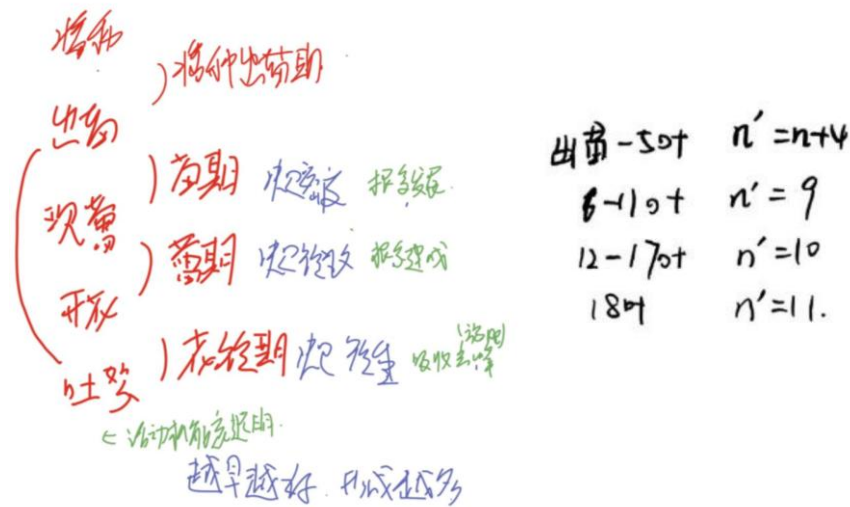 播种
)播种出苗期
出苗
)苗期 决定密度 根系发展
现蕾
)蕾期 决定铃数 根系建成
开花
)花铃期 决定铃重 吸收高峰
吐絮
活动机能衰退期
越早越好.形成越多
出苗-5叶 n'=n+4
6-11叶 n'=9
12-17叶 n'=10
18叶 n'=11.